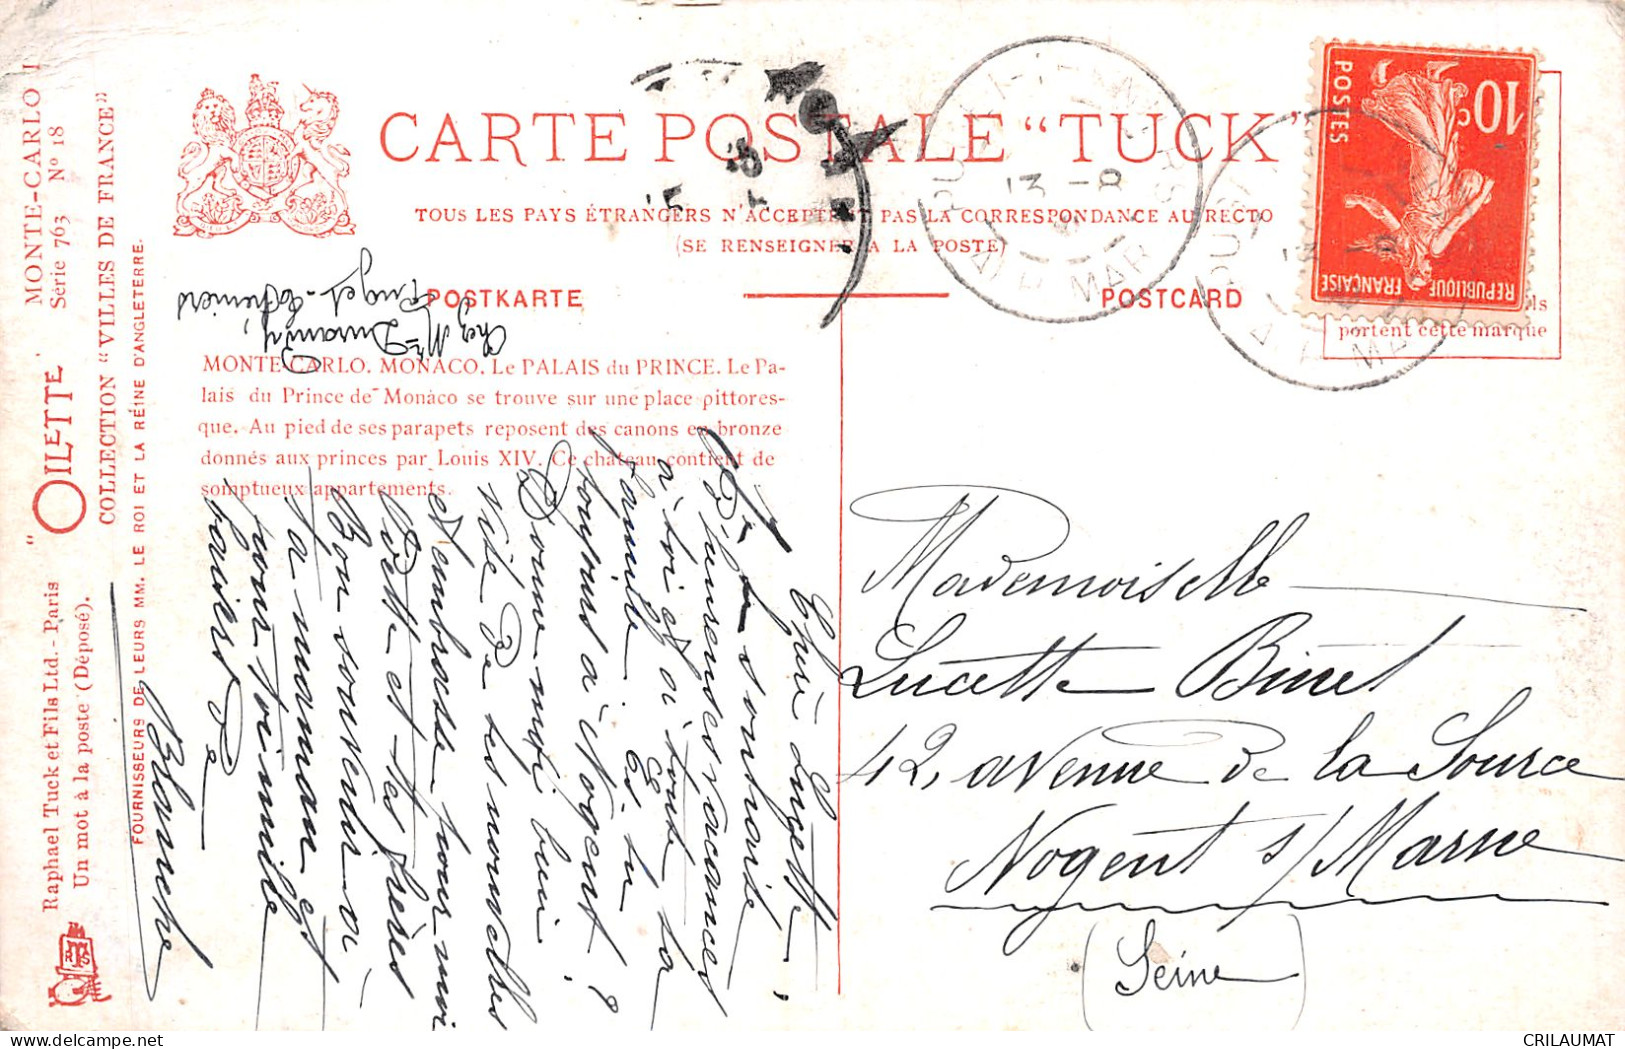 CARTE POSTALE “TUCK”
TOUS LES PAYS ÉTRANGERS N'ACCEPTENT PAS LA CORRESPONDANCE AU RECTO
(SE RENSEIGNER A LA POSTE)
POSTKARTE
POSTCARD
MONTE-CARLO I
Série 763 Nº 18
“OILETTE”
COLLECTION “VILLES DE FRANCE”
FOURNISSEURS DE LEURS MM. LE ROI ET LA REINE D'ANGLETERRE.
Raphael Tuck et Fils Ltd. - Paris
Un mot à la poste (Déposé).
MONTE-CARLO. MONACO. Le PALAIS du PRINCE. Le Pa-
lais du Prince de Monaco se trouve sur une place pittores-
que. Au pied de ses parapets reposent des canons en bronze
donnés aux princes par Louis XIV. Ce château contient de
somptueux appartements.
POSTES
10c
REPUBLIQUE FRANÇAISE
ils
portent cette marque
13 - 8
MAR
Chez Mr
Puget-Théniers
Chère Lucette,
souhaite
d'heureuses vacances
à toi et à toute ta
famille. Es-tu
toujours à Nogent?
Donne-moi bien
vite de tes nouvelles
et embrasse pour moi
et tes frères
Bon souvenir à
ta maman et
pour toi mille
baisers de
Blanche
Mademoiselle
Lucette Binet
42, avenue de la Source
Nogent s/ Marne
(Seine)
CRILAUMAT